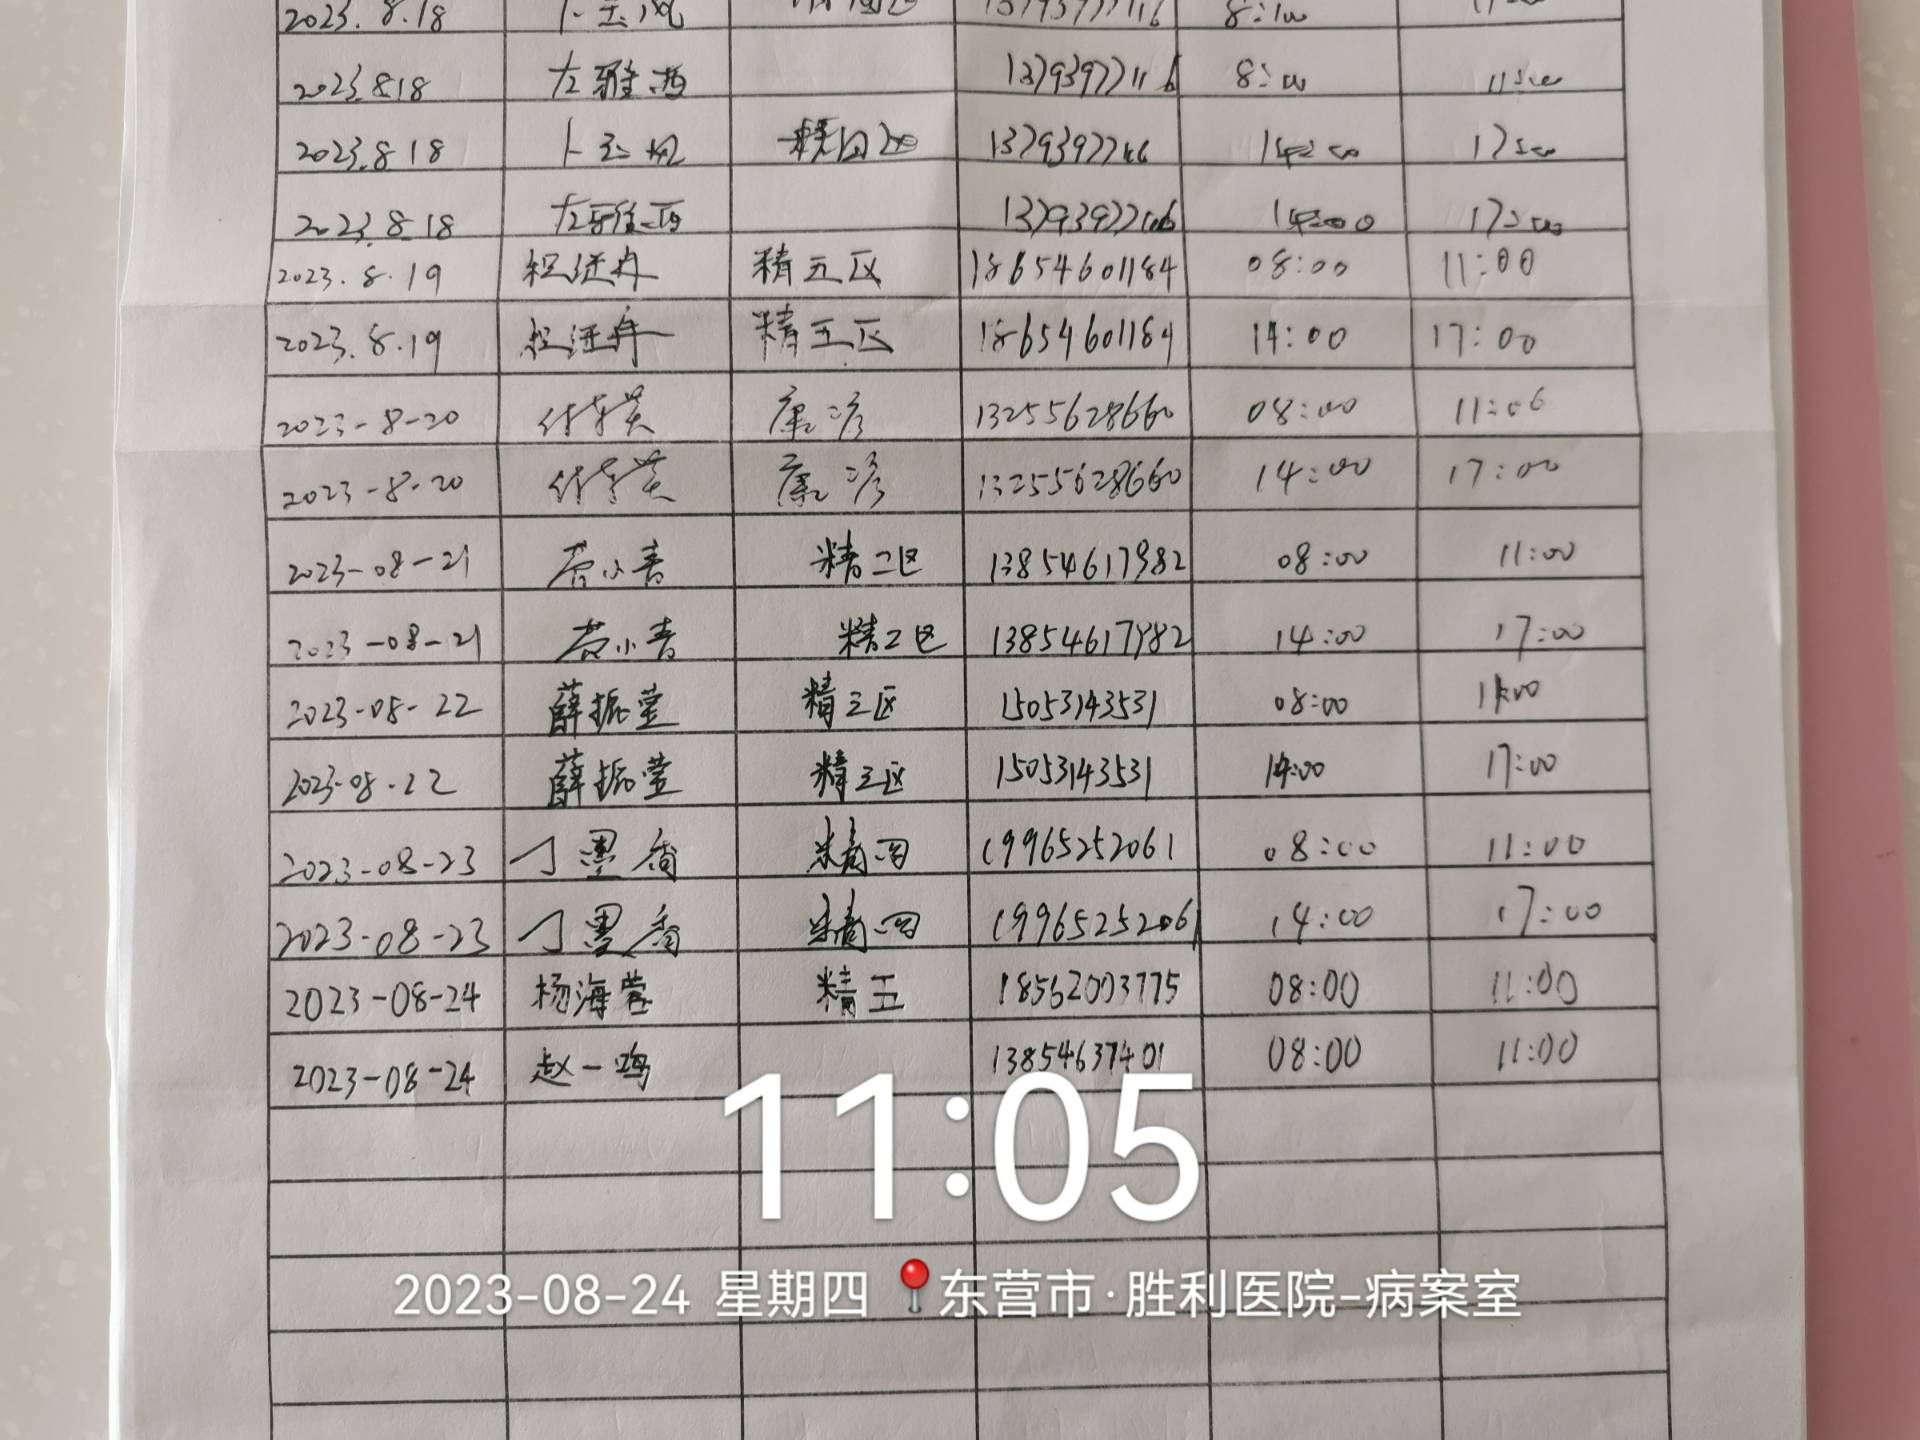 2023.8.18 8:00
2023.8.18 左雅西 13793977116 8:00 11:00
2023.8.18 精四区 14:00 17:00
2023.8.18 左雅西 14:00 17:00
2023.8.19 精五区 18654601184 08:00 11:00
2023.8.19 精五区 18654601184 14:00 17:00
2023-8-20 康 13255628660 08:00 11:00
2023-8-20 康 13255628660 14:00 17:00
2023-08-21 小青 精二区 13854617982 08:00 11:00
2023-08-21 小青 精二区 13854617982 14:00 17:00
2023-08-22 薛振莹 精三区 15053143531 08:00 11:00
2023-08-22 薛振莹 精三区 15053143531 14:00 17:00
2023-08-23 丁墨香 精四 19965252061 08:00 11:00
2023-08-23 丁墨香 精四 19965252061 14:00 17:00
2023-08-24 杨海莹 精五 18562003775 08:00 11:00
2023-08-24 赵一鸣 13854637401 08:00 11:00
11:05
2023-08-24 星期四 东营市·胜利医院-病案室